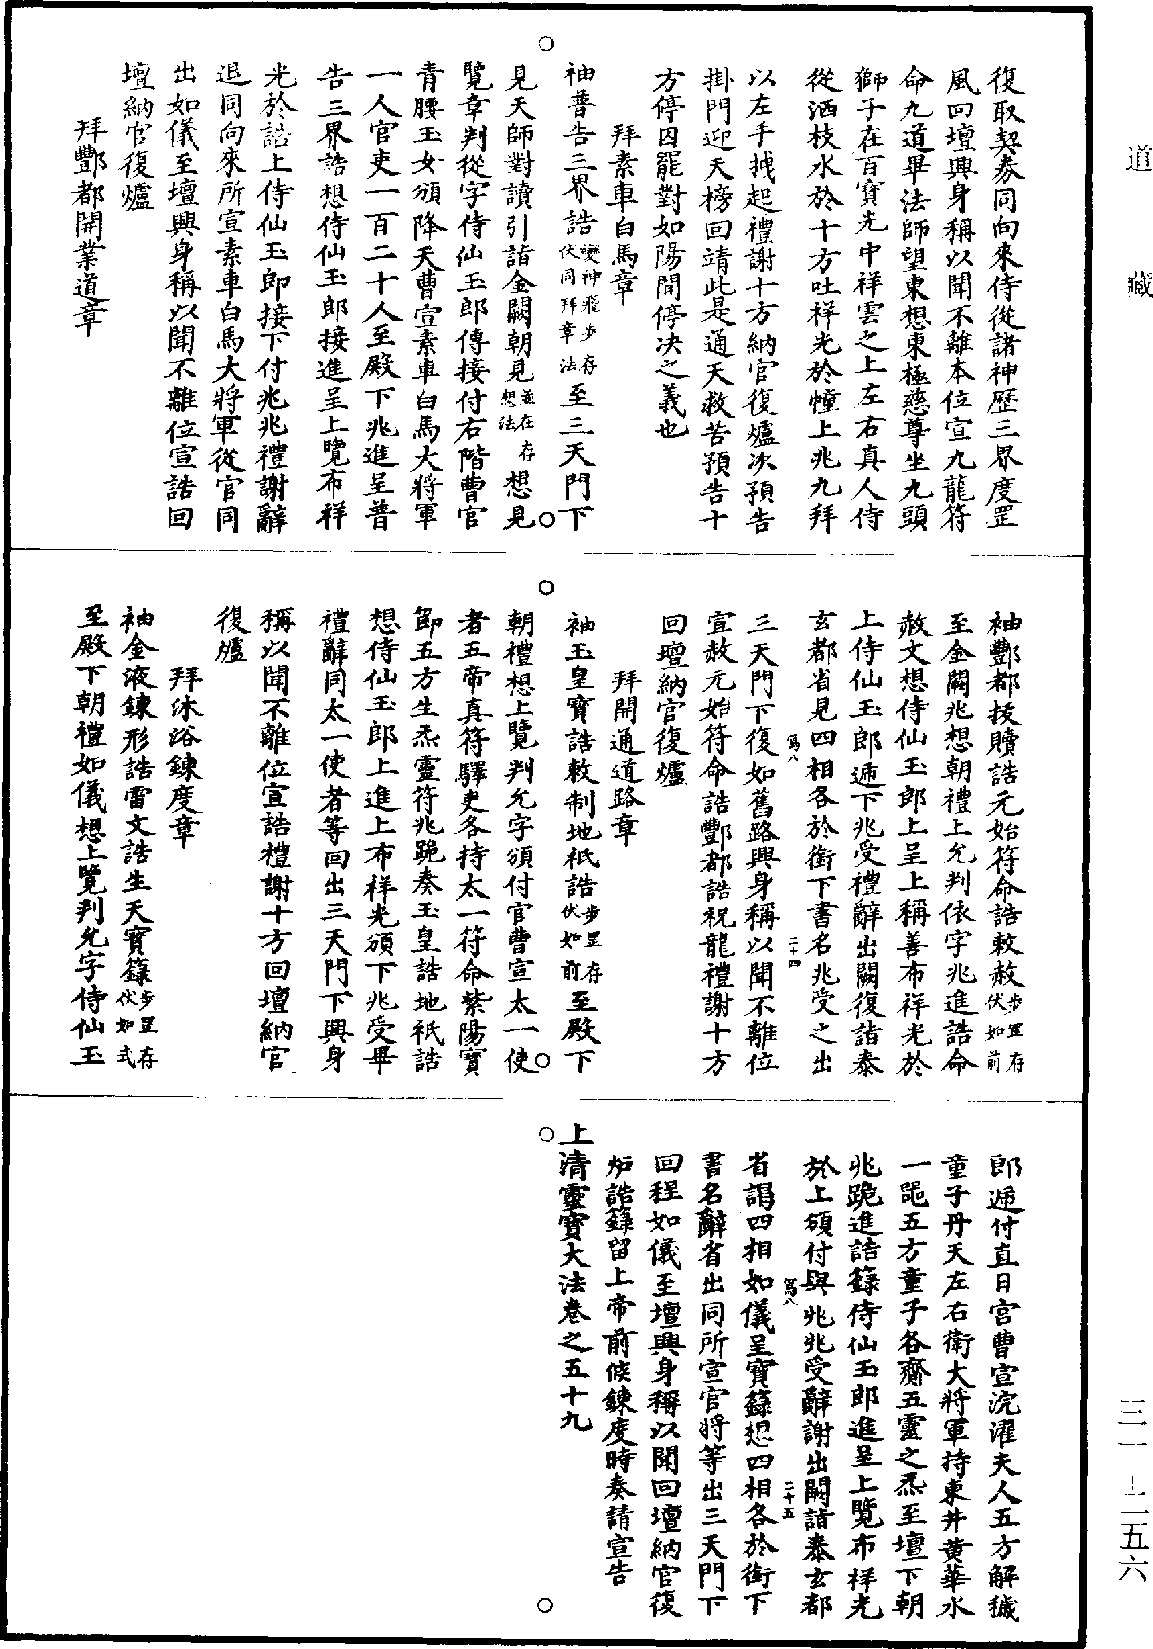 道藏
復取契券同向來侍從諸神歷三界度罡
風回壇興身稱以聞不離本位宣九龍符
命九道畢法師望東想東極慈尊坐九頭
獅子在百寶光中祥雲之上左右真人侍
從洒枝水於十方吐祥光於幢上兆九拜
以左手拽起禮謝十方納官復爐次預告
掛門迎天榜回靖此是通天救苦預告十
方停囚罷對如陽間停决之義也
拜素車白馬章
袖普告三界誥變神飛步存伏同拜章法至三天門下
見天師對讀引詣金闕朝見並在存想法想見
覽章判從字侍仙玉郎傳接付右階曹官
青腰玉女頒降天曹宣素車白馬大將軍
一人官吏一百二十人至殿下兆進呈普
告三界誥想侍仙玉郎接進呈上覽布祥
光於誥上侍仙玉郎接下付兆兆禮謝辭
退同向來所宣素車白馬大將軍從官同
出如儀至壇興身稱以聞不離位宣誥回
壇納官復爐
拜酆都開業道章
袖酆都拔贖誥元始符命誥敕赦步罡存伏如前
至金闕兆想朝禮上允判依字兆進誥命
赦文想侍仙玉郎上呈上稱善布祥光於
上侍仙玉郎逓下兆受禮辭出闕復詣泰
玄都省見四相各於銜下書名兆受之出
寫八
二十四
三天門下復如舊路興身稱以聞不離位
宣赦元始符命誥酆都誥祝龍禮謝十方
回壇納官復爐
拜開通道路章
袖玉皇寶誥敕制地祇誥步罡存伏如前至殿下
朝禮想上覽判允字頒付官曹宣太一使
者五帝真符驛吏各持太一符命紫陽寶
節五方生炁靈符兆跪奏玉皇誥地祇誥
想侍仙玉郎上進上布祥光頒下兆受畢
禮辭同太一使者等回出三天門下興身
稱以聞不離位宣誥禮謝十方回壇納官
復爐
拜沐浴鍊度章
袖金液鍊形誥雷文誥生天寶籙步罡存伏如式
至殿下朝禮如儀想上覽判允字侍仙玉
郎逓付直日宫曹宣浣濯夫人五方解穢
童子丹天左右衛大將軍持東井黄華水
一甌五方童子各齎五靈之炁至壇下朝
兆跪進誥籙侍仙玉郎進呈上覽布祥光
於上頒付與兆兆受辭謝出闕詣泰玄都
寫八
二十五
省謁四相如儀呈寶籙想四相各於銜下
書名辭省出同所宣官將等出三天門下
回程如儀至壇興身稱以聞回壇納官復
炉誥籙留上帝前候鍊度時奏請宣告
上清靈寶大法卷之五十九
三一—二五六